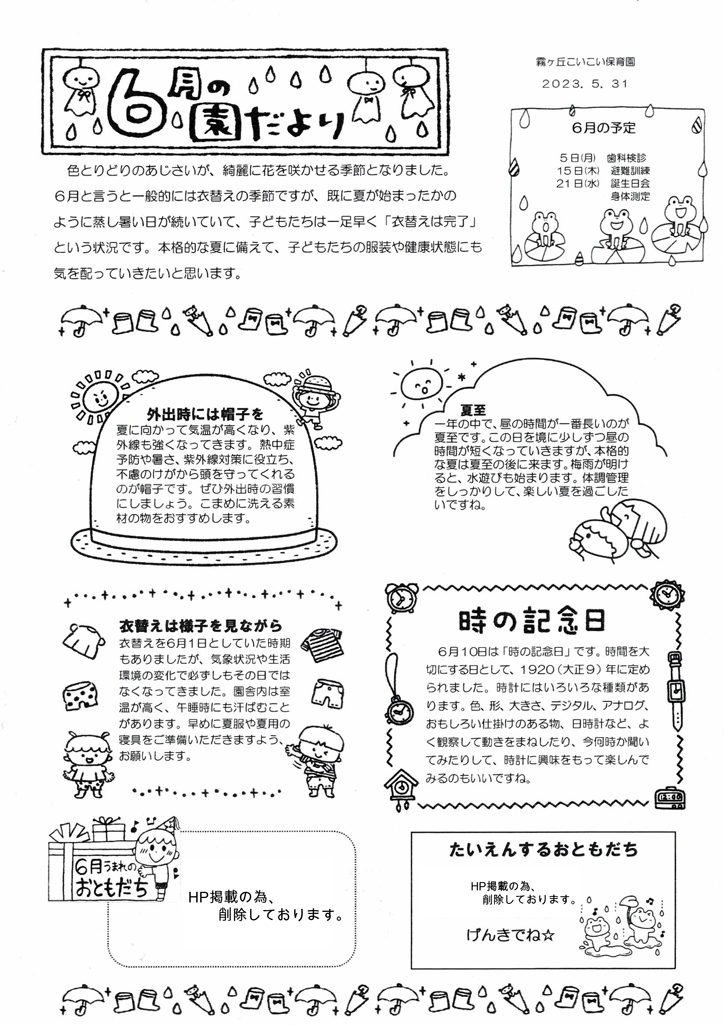 6月の園だより
霧ヶ丘こいこい保育園
2023.5.31
色とりどりのあじさいが、綺麗に花を咲かせる季節となりました。
6月と言うと一般的には衣替えの季節ですが、既に夏が始まったかの
ように蒸し暑い日が続いていて、子どもたちは一足早く「衣替えは完了」
という状況です。本格的な夏に備えて、子どもたちの服装や健康状態にも
気を配っていきたいと思います。
6月の予定
5日(月) 歯科検診
15日(木) 避難訓練
21日(水) 誕生日会
身体測定
外出時には帽子を
夏に向かって気温が高くなり、紫
外線も強くなってきます。熱中症
予防や暑さ、紫外線対策に役立ち、
不慮のけがから頭を守ってくれる
のが帽子です。ぜひ外出時の習慣
にしましょう。こまめに洗える素
材の物をおすすめします。
夏至
一年の中で、昼の時間が一番長いのが
夏至です。この日を境に少しずつ昼の
時間が短くなっていきますが、本格的
な夏は夏至の後に来ます。梅雨が明け
ると、水遊びも始まります。体調管理
をしっかりして、楽しい夏を過ごした
いですね。
衣替えは様子を見ながら
衣替えを6月1日としていた時期
もありましたが、気象状況や生活
環境の変化で必ずしもその日では
なくなってきました。園舎内は室
温が高く、午睡時にも汗ばむこと
があります。早めに夏服や夏用の
寝具をご準備いただきますよう、
お願いします。
時の記念日
6月10日は「時の記念日」です。時間を大
切にする日として、1920(大正9)年に定め
られました。時計にはいろいろな種類があ
ります。色、形、大きさ、デジタル、アナログ、
おもしろい仕掛けのある物、日時計など、よ
く観察して動きをまねしたり、今何時か聞い
てみたりして、時計に興味をもって楽しんで
みるのもいいですね。
6月うまれの
おともだち
HP掲載の為、
削除しております。
たいえんするおともだち
HP掲載の為、
削除しております。
げんきでね☆